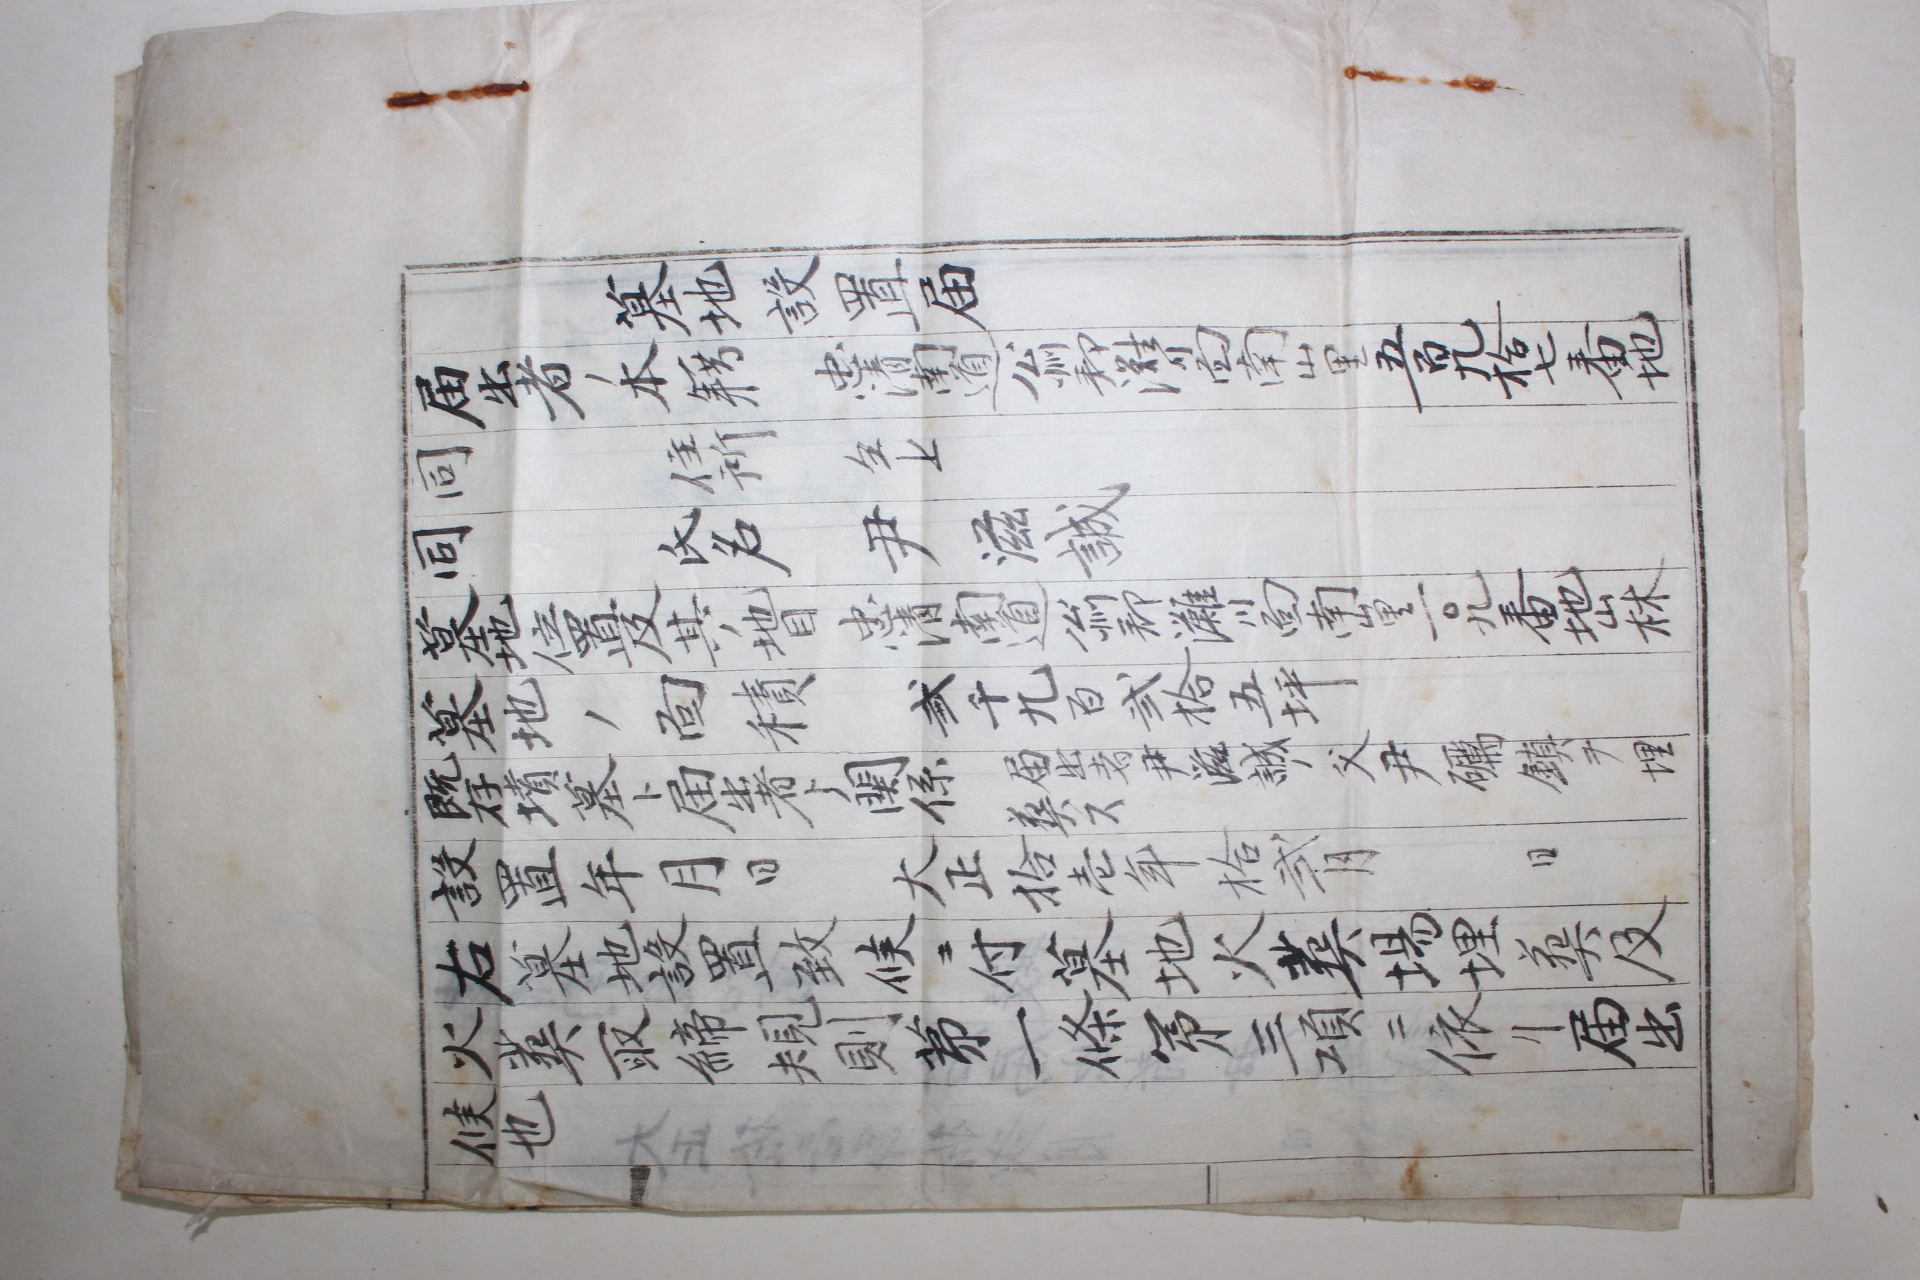 墓地設置届
届出者ノ本籍 忠清南道公州郡灘川面南山里五百九拾七番地
同 住所 仝上
同 氏名 尹滋誠
墓地位置及其ノ地目 忠清南道公州郡灘川面南山里一〇九番地山林
墓地ノ面積 貳千九百貳拾五坪
既存墳墓ト届出者トノ関係 届出者尹滋誠ノ父尹鎮ヲ埋
葬ス
設置年月日 大正拾壱年拾貳月 日
右墓地設置致候ニ付墓地火葬場埋葬及
火葬取締規則第一條第三項ニ依リ届出
候也